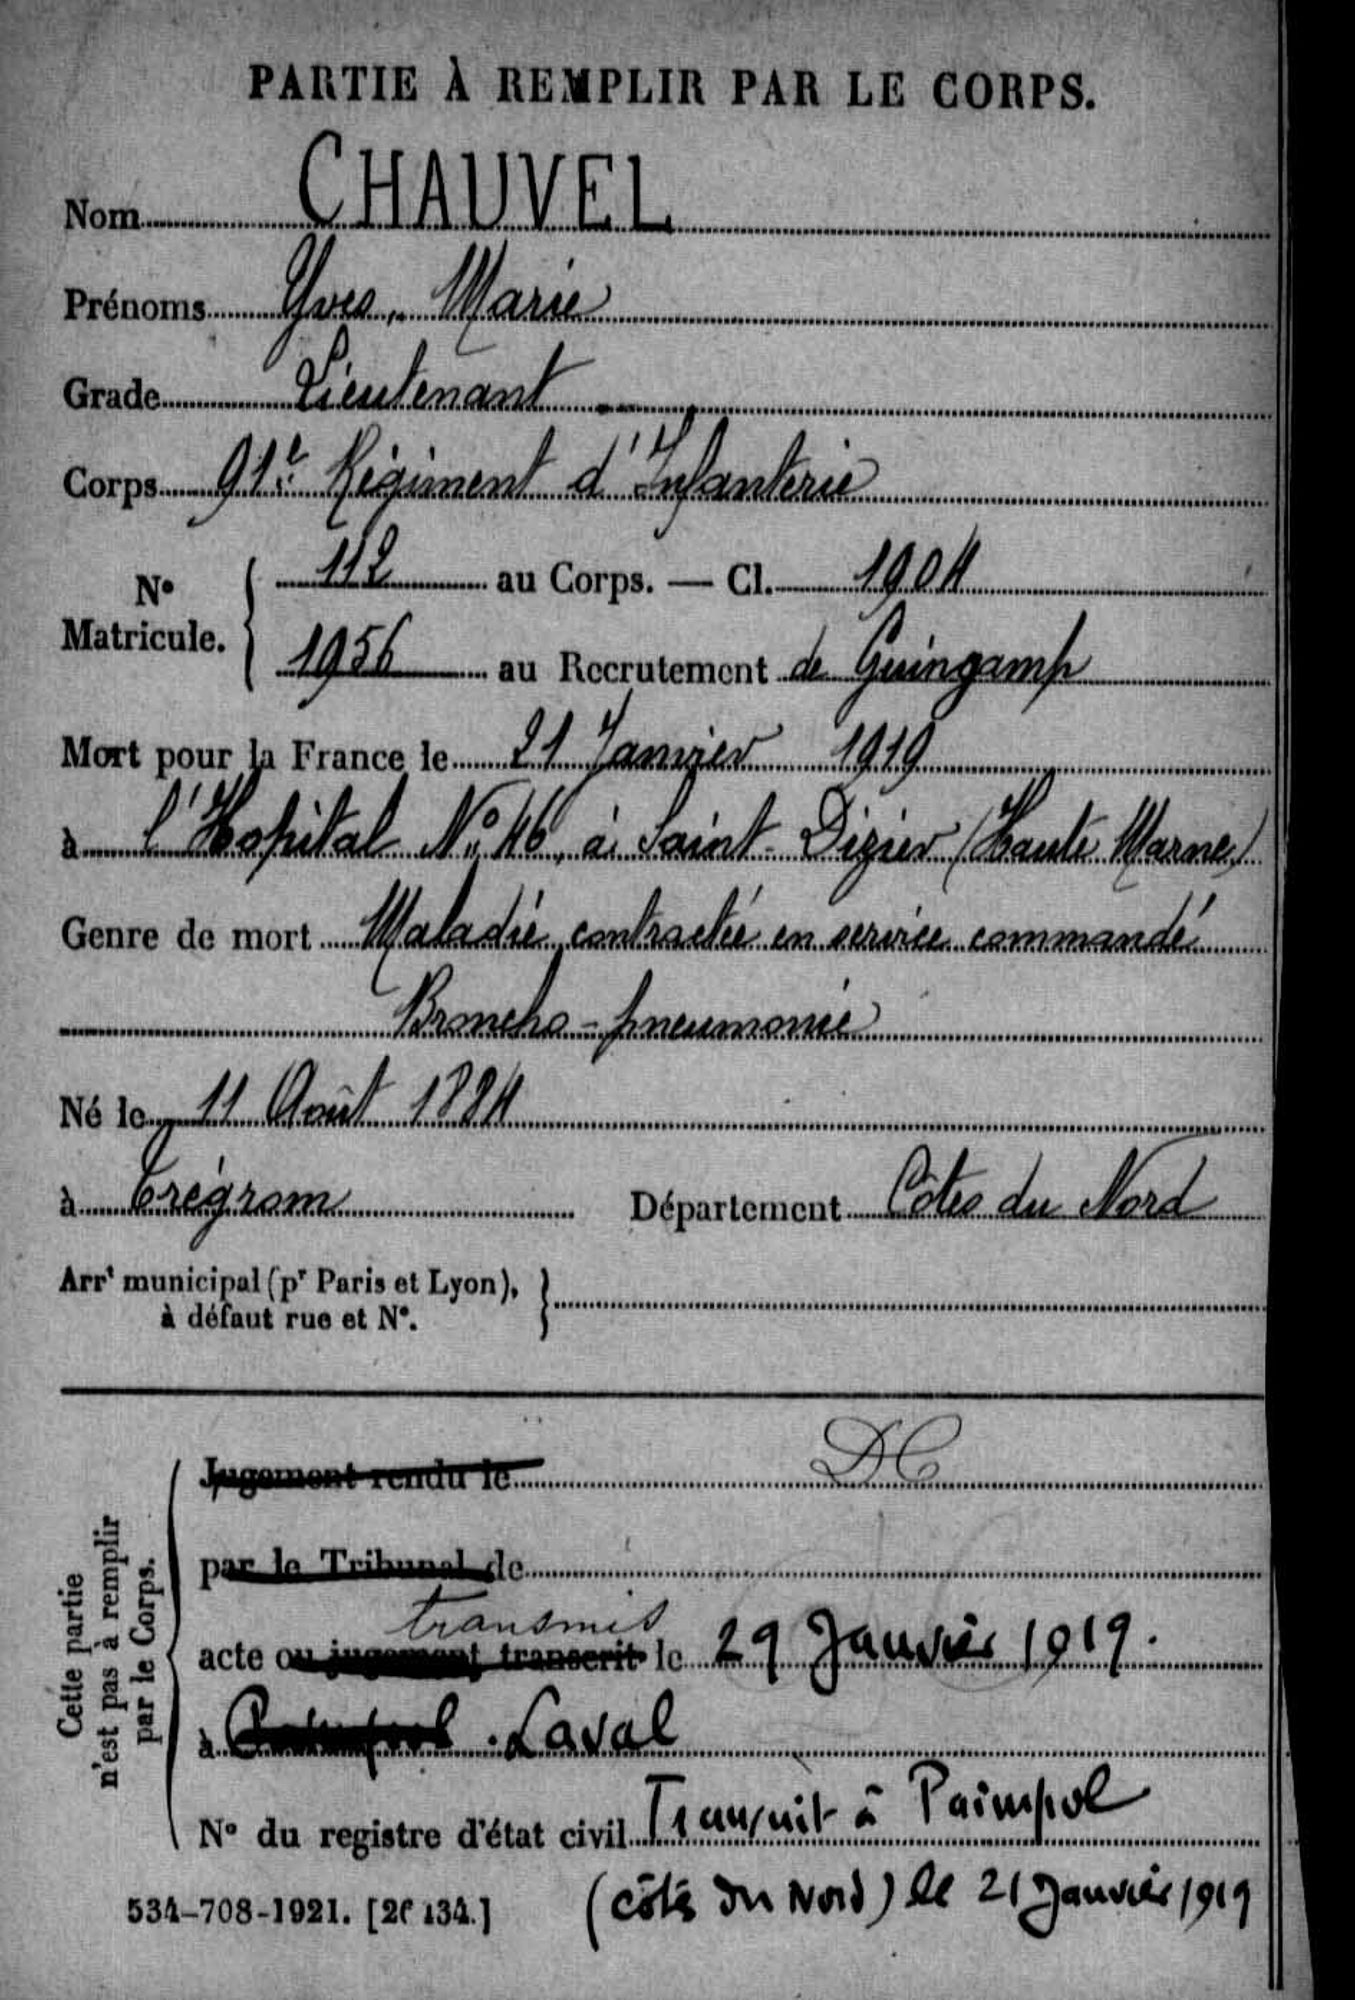 PARTIE À REMPLIR PAR LE CORPS.
Nom CHAUVEL
Prénoms Yves, Marie
Grade Lieutenant
Corps 91e Régiment d'Infanterie
N° Matricule. 112 au Corps. — Cl. 1904
1956 au Recrutement de Guingamp
Mort pour la France le 21 Janvier 1919
à l'Hopital N° 46, à Saint-Dizier (Haute Marne)
Genre de mort Maladie contractée en service commandé
Broncho-pneumonie
Né le 11 Août 1884
à Trégrom Département Côtes du Nord
Arrt municipal (pr Paris et Lyon),
à défaut rue et N°.
Cette partie
n'est pas à remplir
par le Corps.
Jugement rendu le DC
par le Tribunal de
transmis
acte ou jugement transcrit le 29 Janvier 1919.
à Paimpol . Laval
N° du registre d'état civil Transcrit à Paimpol
534-708-1921. [26134.] (côtes du Nord) le 21 Janvier 1919